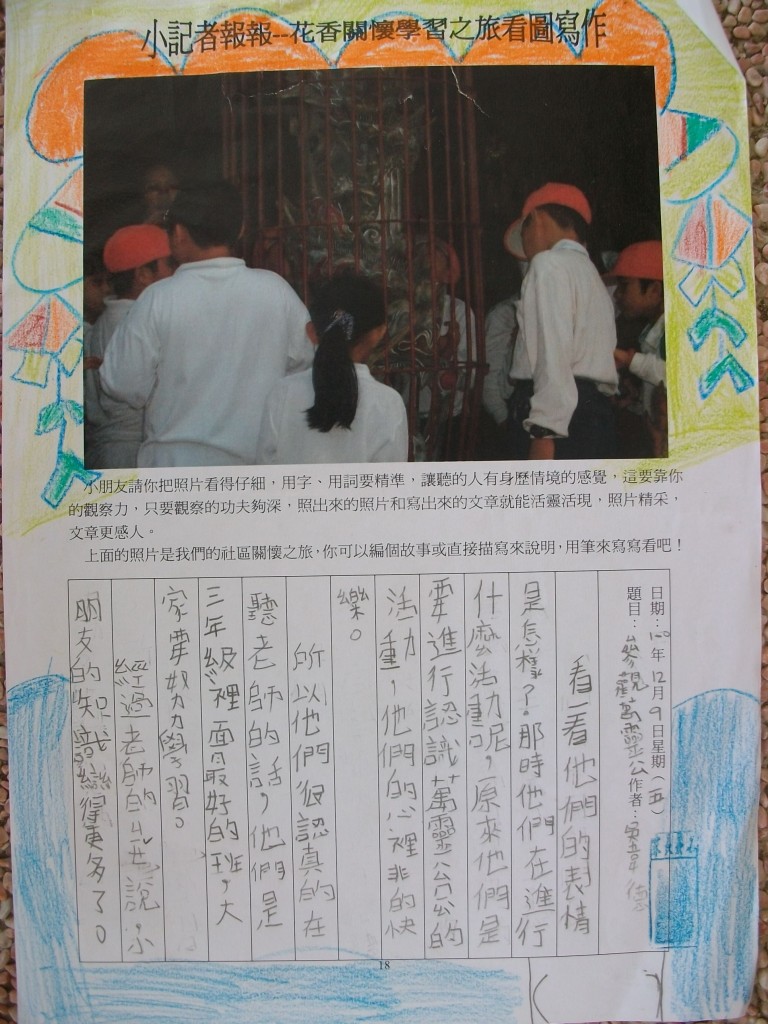 小記者報報--花香關懷學習之旅看圖寫作
小朋友請你把照片看得仔細，用字、用詞要精準，讓聽的人有身歷情境的感覺，這要靠你
的觀察力，只要觀察的功夫夠深，照出來的照片和寫出來的文章就能活靈活現，照片精采，
文章更感人。
上面的照片是我們的社區關懷之旅，你可以編個故事或直接描寫來說明，用筆來寫寫看吧！
日期：100年12月9日星期（五）
題目：參觀萬靈公作者：
看一看他們的表情
是怎樣？那時他們在進行
什麼活動呢，原來他們是
要進行認識萬靈公公的
活動，他們的心裡非的快
樂。
所以他們很認真的在
聽老師的話，他們是
三年級裡面最好的班，大
家要努力學習。
經過老師的解說，小
朋友的知識變得更多了。
18